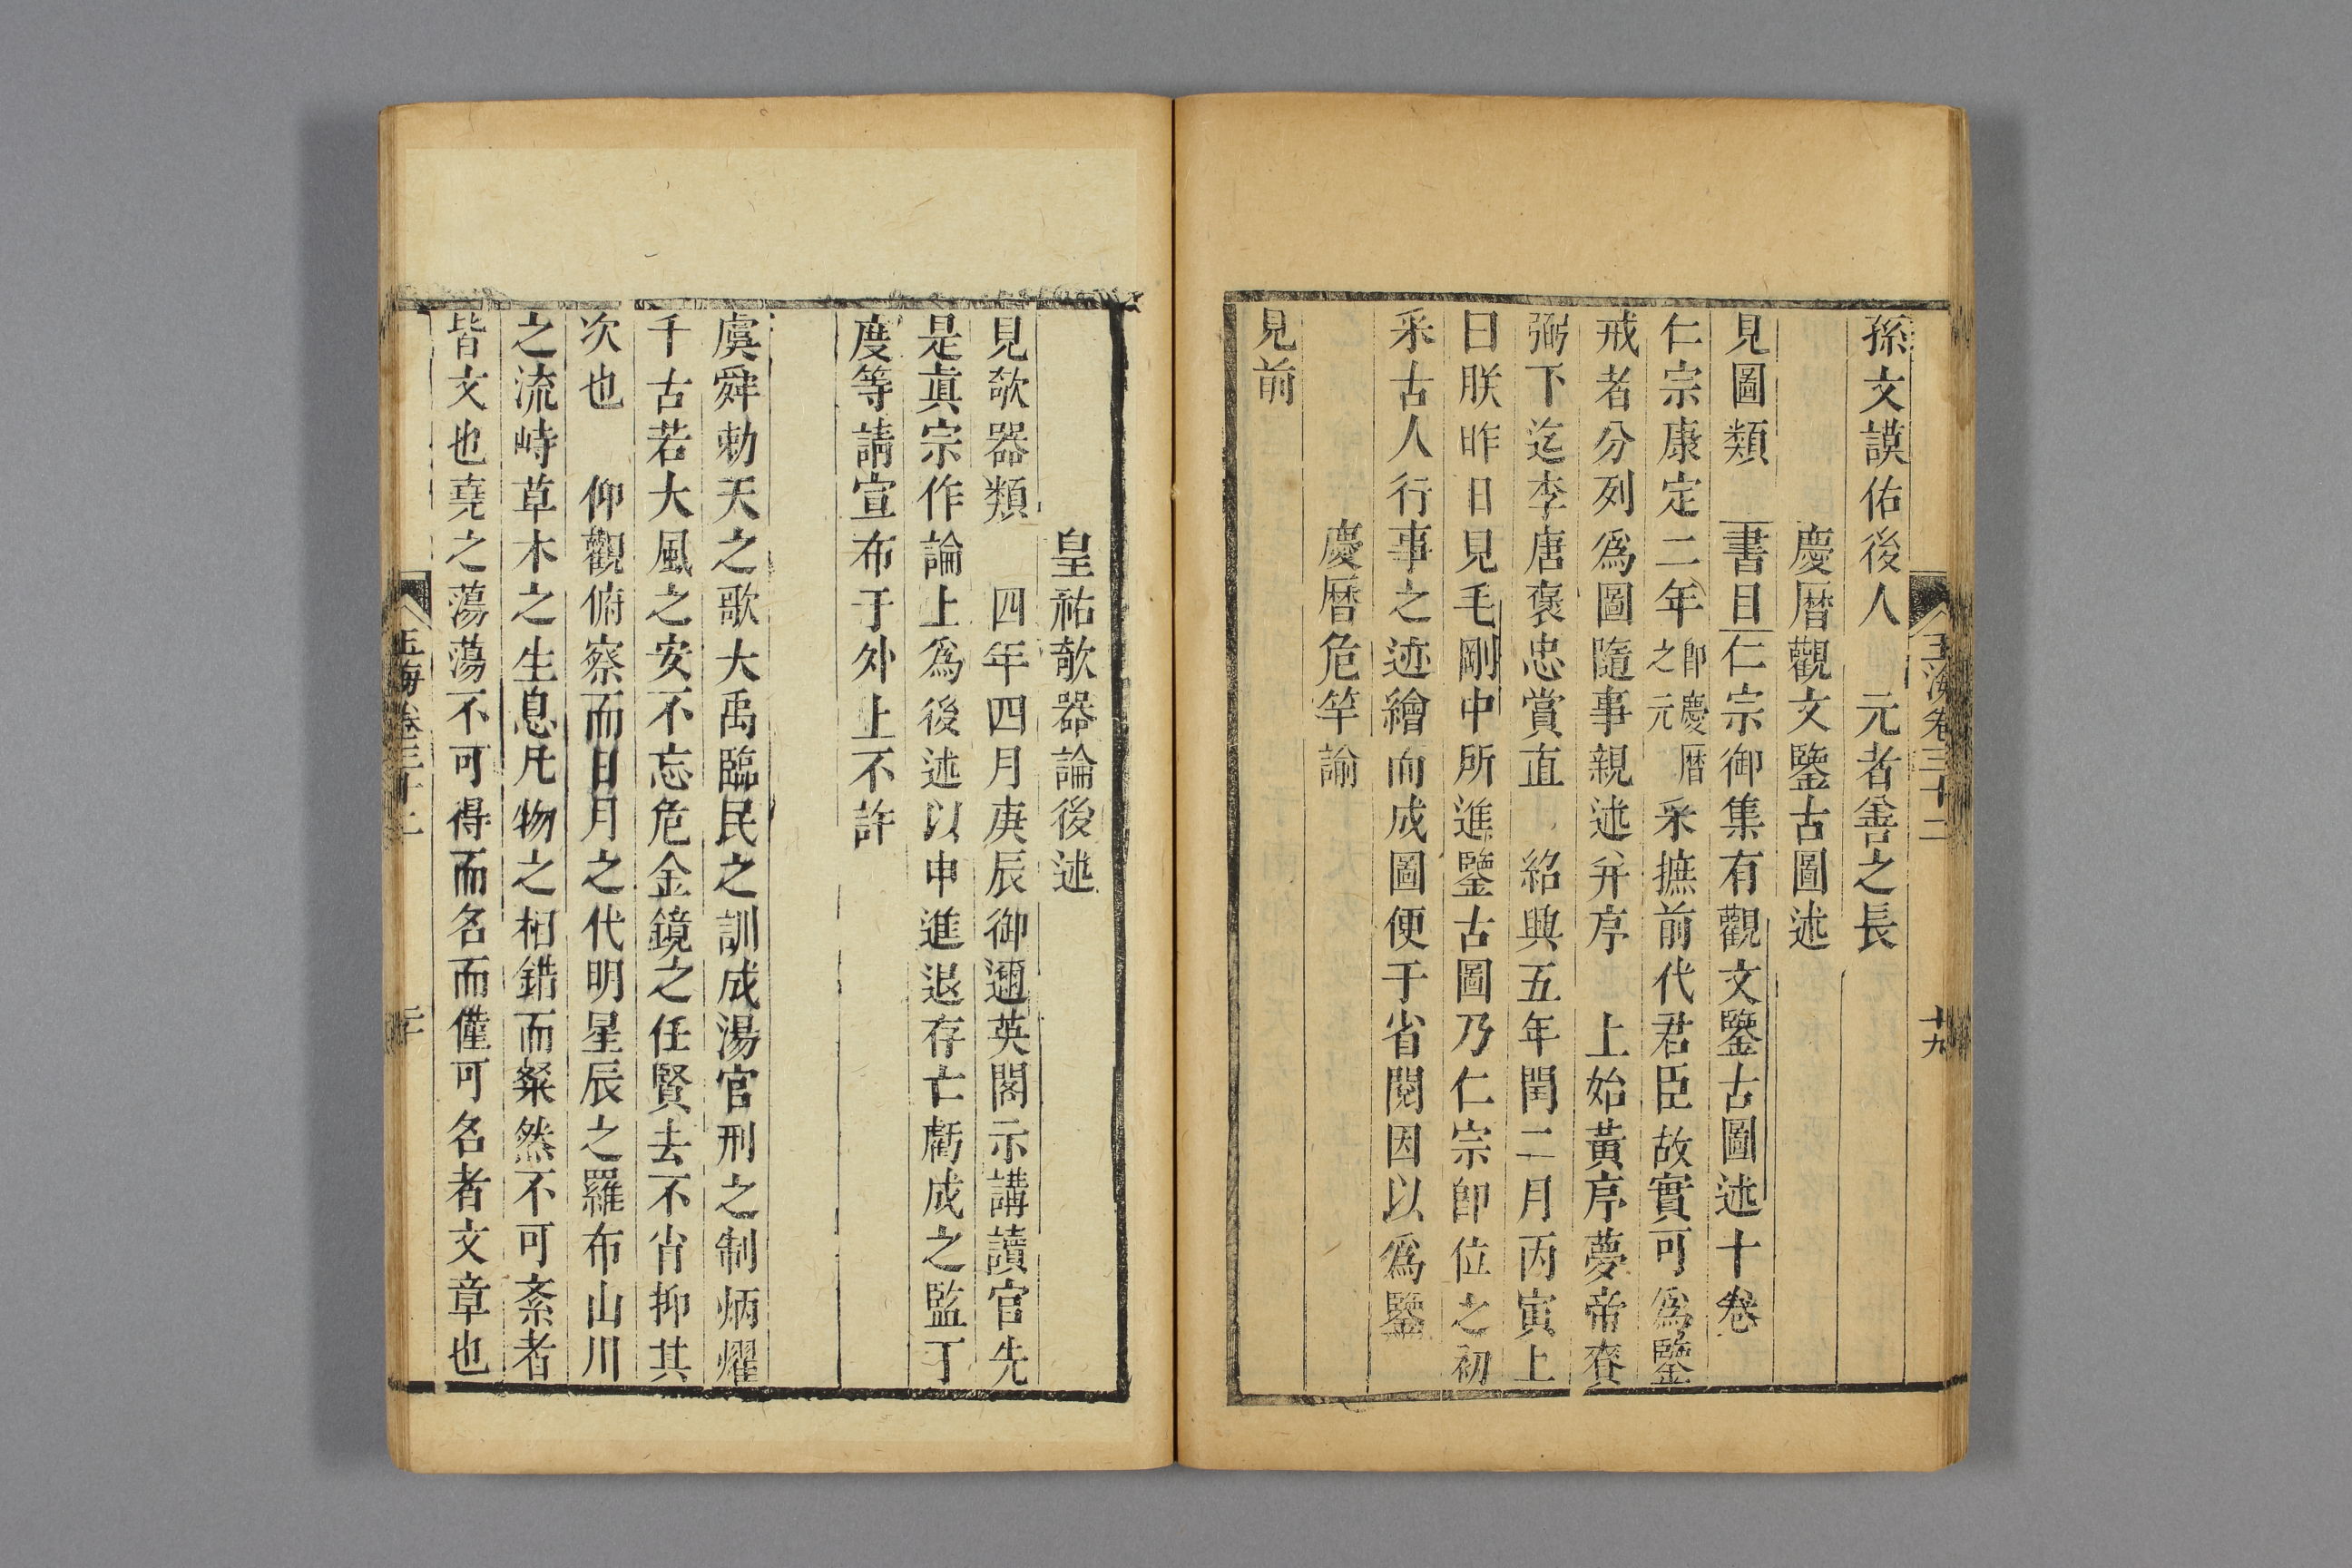 玉海卷三十二 十九
孫文謨佑後人 元者善之長
慶曆觀文鑒古圖述
見圖類 書目仁宗御集有觀文鑒古圖述十卷
仁宗康定二年即慶曆之元采摭前代君臣故實可爲鑒
戒者分列爲圖隨事親述并序 上始黃帝夢帝賚
弼下迄李唐褒忠賞直 紹興五年閏二月丙寅上
曰朕昨日見毛剛中所進鑒古圖乃仁宗即位之初
采古人行事之迹繪而成圖便于省閱因以爲鑒
慶曆危竿諭
見前
皇祐欹器論後述
見欹器類 四年四月庚辰御邇英閣示講讀官先
是真宗作論上爲後述以申進退存亡虧成之監丁
度等請宣布于外上不許
虞舜勅天之歌大禹臨民之訓成湯官刑之制炳燿
千古若大風之安不忘危金鏡之任賢去不肖抑其
次也 仰觀俯察而日月之代明星辰之羅布山川
之流峙草木之生息凡物之相錯而粲然不可紊者
皆文也堯之蕩蕩不可得而名而僅可名者文章也
玉海卷三十二 二十